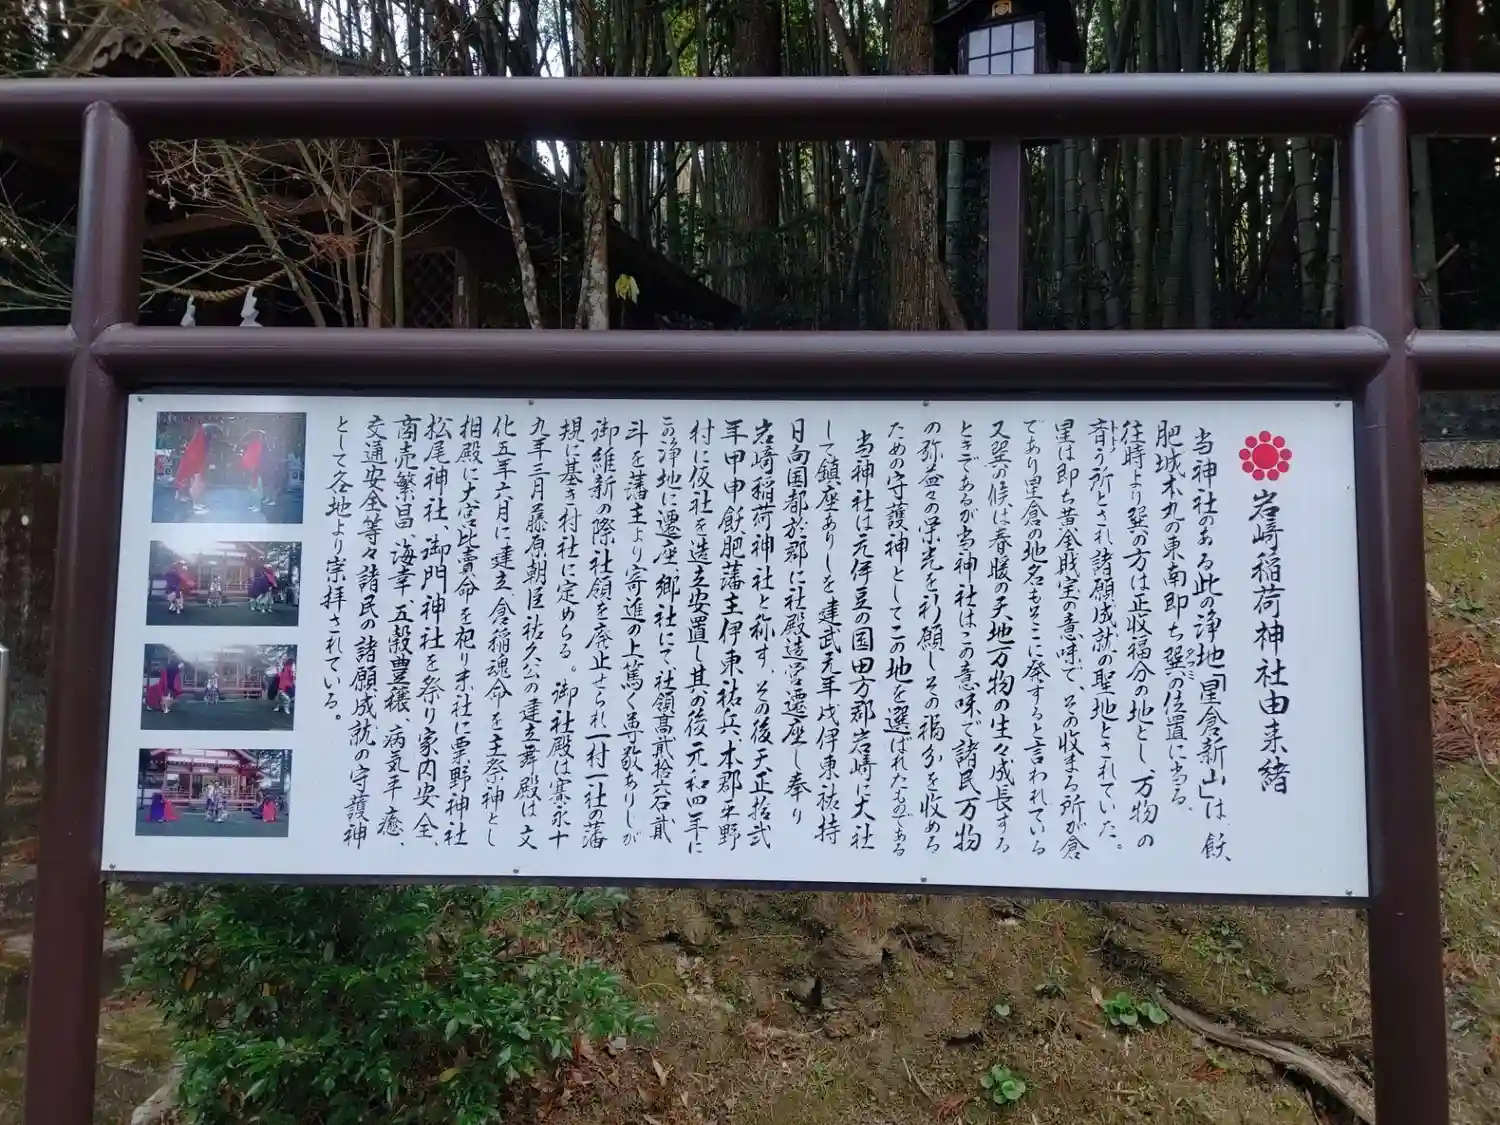 岩﨑稲荷神社由来緒
当神社のある此の浄地「星倉新山」は、飫
肥城本丸の東南即ち巽の位置に当る。
往時より巽の方は正収福分の地とし、万物の
育う所とされ諸願成就の聖地とされていた。
星は即ち黄金財宝の意味で、その収まる所が倉
であり星倉の地名もそこに発すると言われている
又巽の候は春暖の天地万物の生々成長する
ときであるが当神社はこの意味で諸民万物
の弥益々の栄光を祈願しその福分を収める
ための守護神としてこの地を選ばれたものである
当神社は元伊豆の国田方郡岩﨑に大社
して鎮座ありしを建武元年戌伊東祐持
日向国都於郡に社殿造宮遷座し奉り
岩﨑稲荷神社と称す。その後天正拾弐
年甲申飫肥藩主伊東祐兵、本郡平野
村に仮社を造立安置し其の後元和四年に
この浄地に遷座、郷社にて、社領高貳拾六石貳
斗を藩主より寄進の上篤く尊敬ありしが
御維新の際社領を廃止せられ一村一社の藩
規に基き村社に定めらる。御社殿は寛永十
九年三月藤原朝臣祐久公の建立舞殿は文
化五年六月に建立、倉稲魂命を主祭神とし
相殿に大宮比賣命を祀り末社に粟野神社
松尾神社、御門神社を祭り家内安全、
商売繁昌、海幸、五穀豊穣、病気手癒、
交通安全等々諸民の諸願成就の守護神
として各地より崇拝されている。